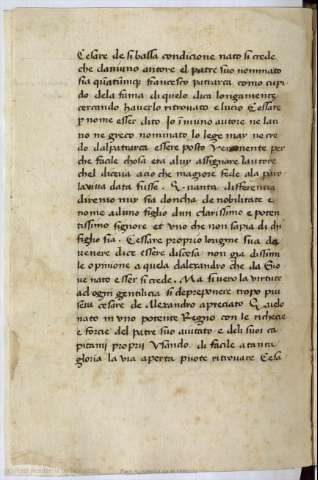 Cesare de si bassa condicione nato si crede
che da niuno autore el patre suo nominato
sia quatũnq; francesco patrarca como cupi
do dela fama di quelo dica longamente
cercando haverlo ritrovato e lucio Cessare
p nome esser dito Jo ĩ niuno autore ne lati
no ne greco nominato lo lege may ne cre
do dal patrarca essere posto Veramente per
che facile chosa era a luy assignare lautore
chel diceva acio che magiore fede ala paro
la viva data fusse. Quanta differentia
diremo muy sia doncha de nobilitate e
nome aduno figlio dun clarissimo e poten
tissimo signore et Uno che non sapia di chi
figlio sia. Cessare proprio lorigine sua da
venere dice essere discesa non gia dissim
le opinione a quela dalexandro che da Gio
ve nato esser si crede. Ma si vero la virtute
ad ogni gentilicia si depreponere tropo piu
seiu cesare de allexandro apreciato Quelo
nato in uno potente Regno con le richecie
e forcie del patre suo aiutato e deli suoi ca
pitani proprii Usando. di facile a tanta
gloria la via aperta puote ritrovare Cesa
Real Academia de la Historia